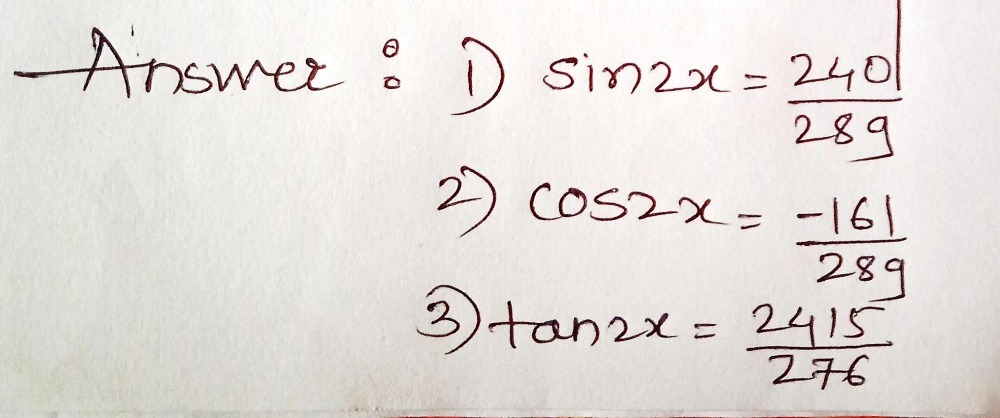 Answer : 1) sin2x = 240/289
2) cos2x = -161/289
3) tan2x = 2415/276